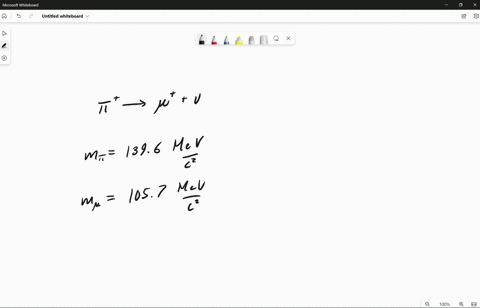 Microsoft Whiteboard
Untitled whiteboard
π⁺ → μ⁺ + ν
m_π = 139.6 MeV/c²
m_μ = 105.7 MeV/c²
100%